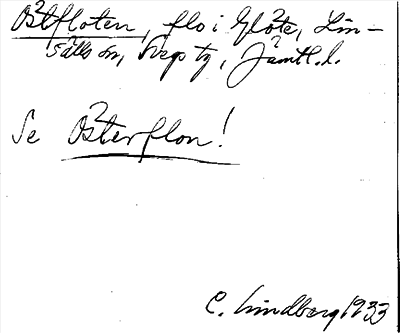 Östfloten, flo i Glöte, Lin-
sälls sn, Svegs tg, Jämtl. l.
Se Österflon!
C. Lindberg 1933